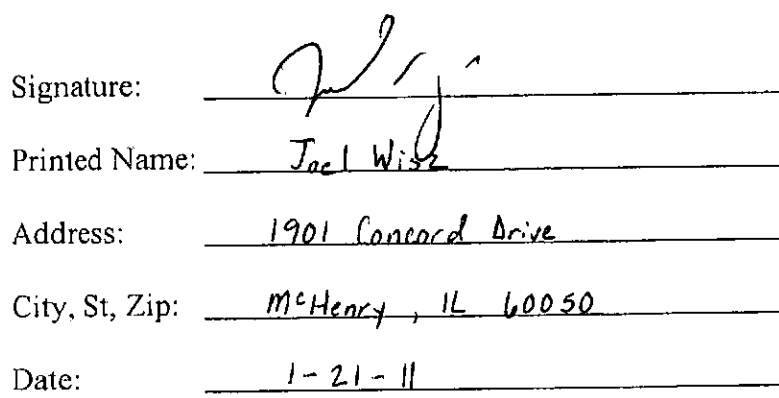 Signature:
Printed Name: Joel Wisz
Address: 1901 Concord Drive
City, St, Zip: McHenry, IL 60050
Date: 1-21-11